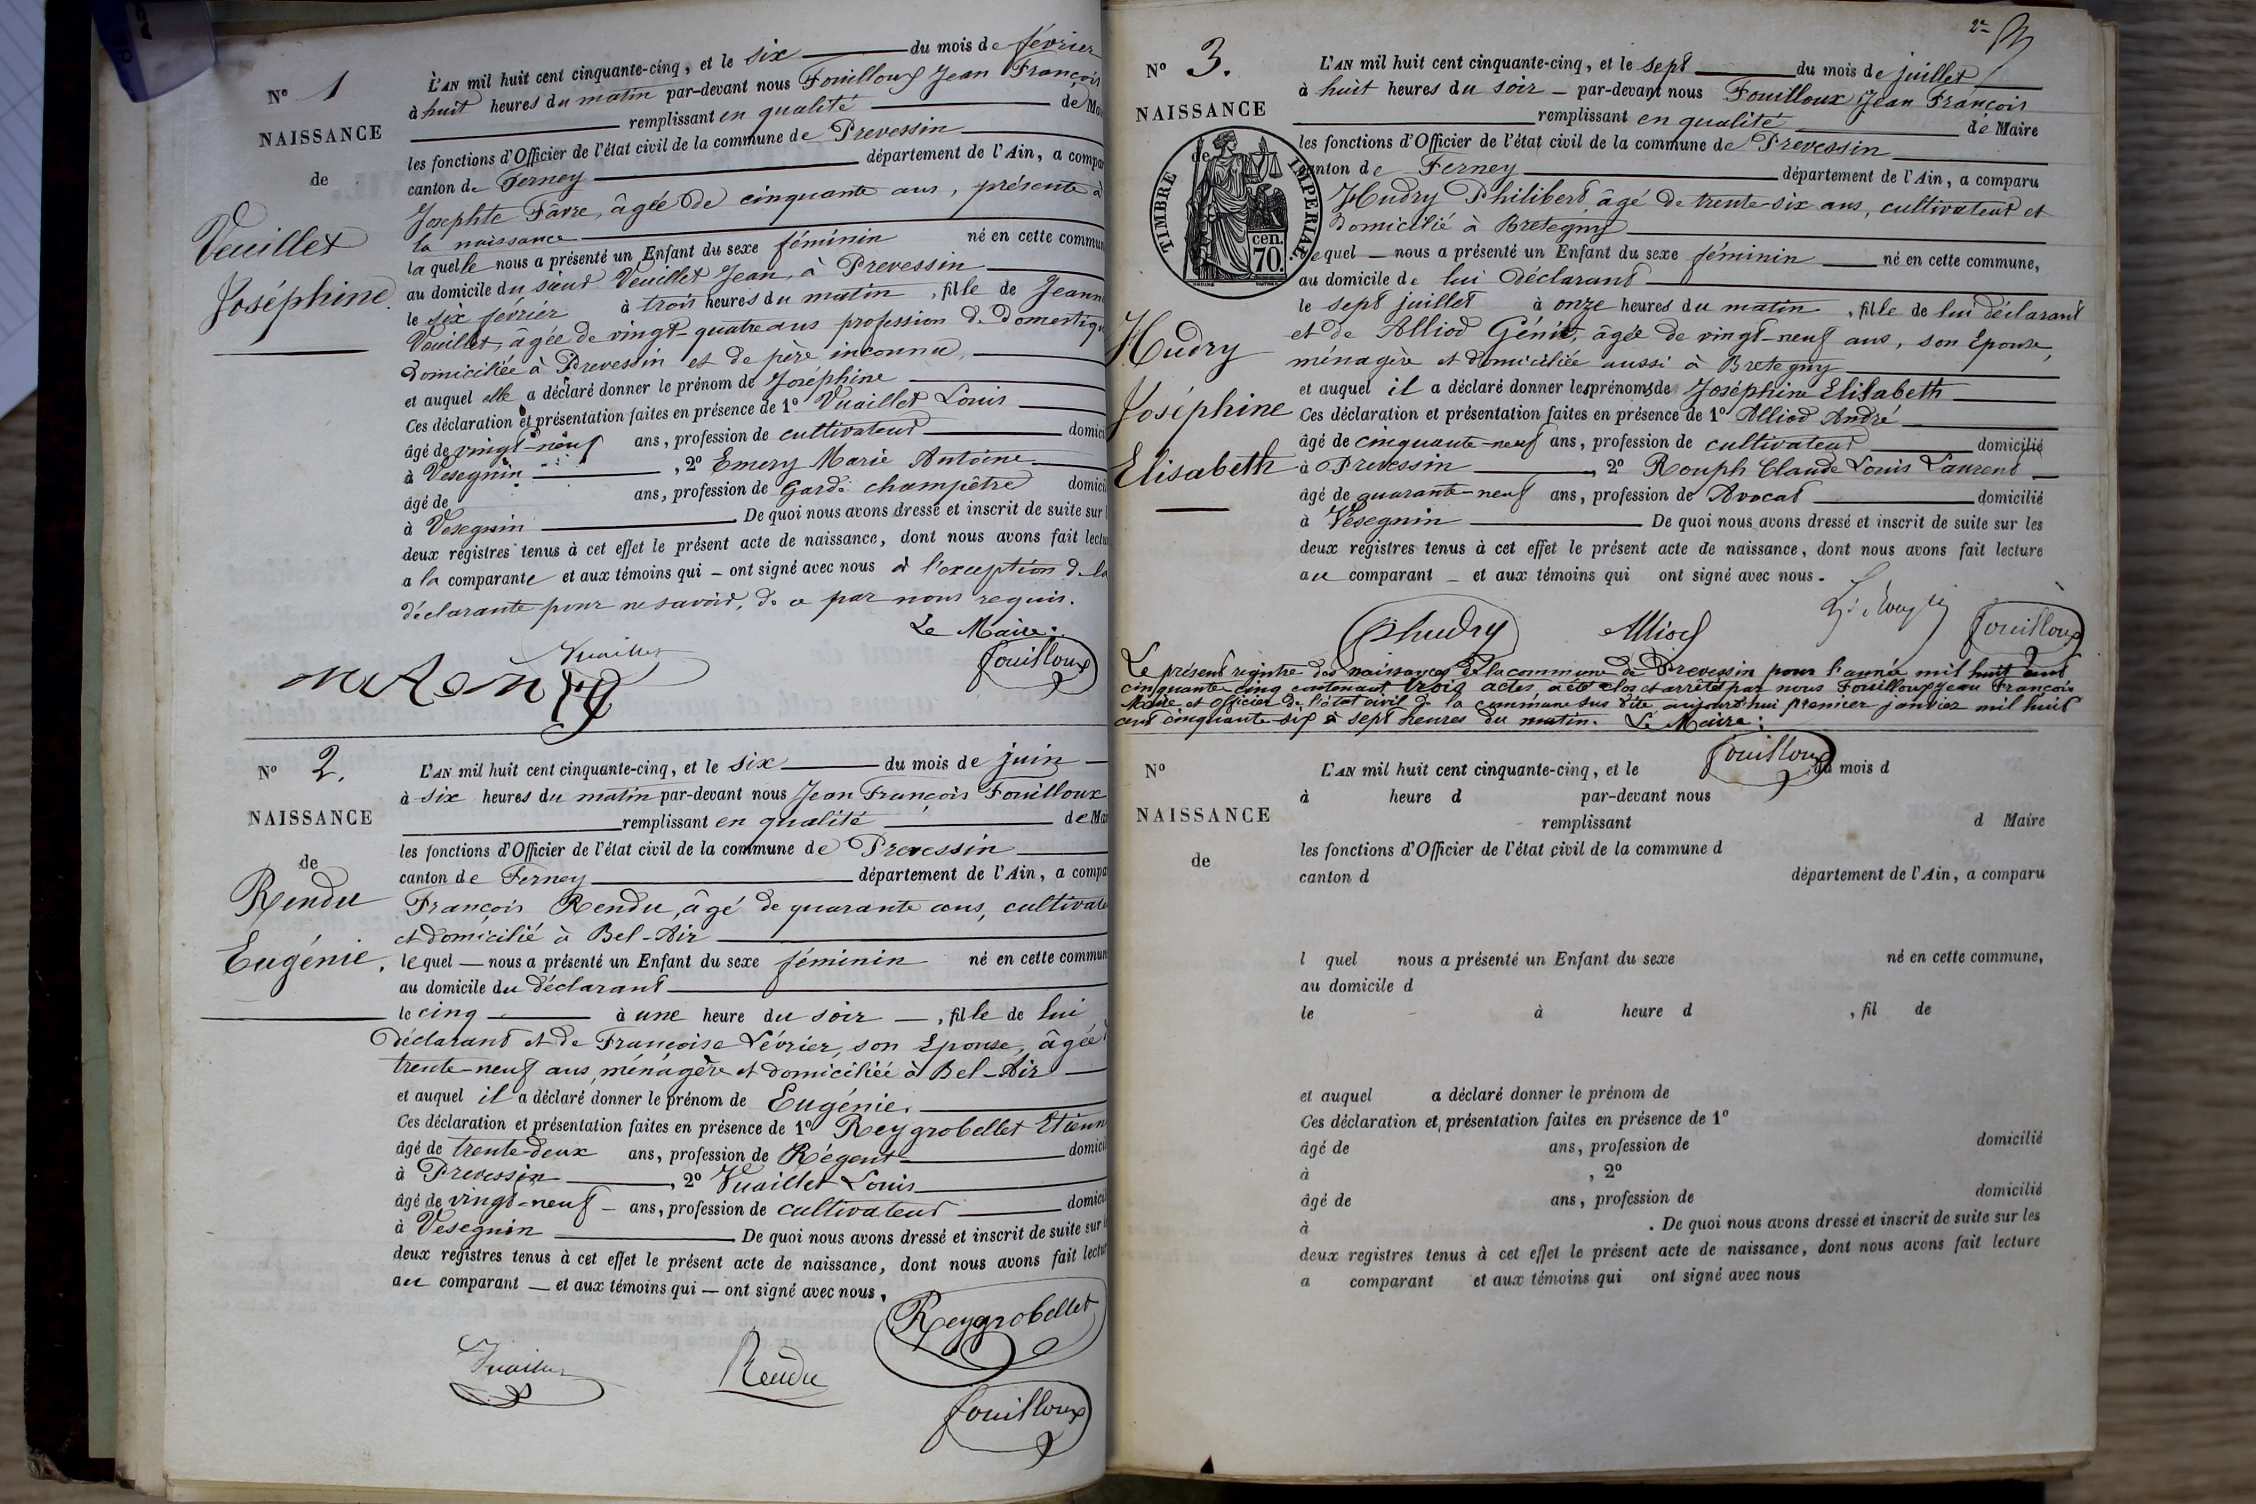 N° 1
NAISSANCE
de
Vuaillet
Joséphine.
L'AN mil huit cent cinquante-cinq, et le six du mois de février
à huit heures du matin par-devant nous Fouilloux Jean François
remplissant en qualité de Mai
les fonctions d'Officier de l'état civil de la commune de Prevessin
canton de Ferney département de l'Ain, a compar
Josephte Favre, âgée de cinquante ans, présente à
la naissance
laquelle nous a présenté un Enfant du sexe féminin né en cette commun
au domicile du sieur Veuillet Jean, à Prevessin
le six février à trois heures du matin, fille de Jeanne
Veuillet, âgée de vingt-quatre ans profession de Domestique
domiciliée à Prevessin et de père inconnu,
et auquel elle a déclaré donner le prénom de Joséphine
Ces déclaration et présentation faites en présence de 1° Vuaillet Louis
âgé de vingt-neuf ans, profession de cultivateur domici
à Vesegnin, 2° Emery Marie Antoine
âgé de ans, profession de Garde champêtre domici
à Vesegnin. De quoi nous avons dressé et inscrit de suite sur l
deux registres tenus à cet effet le présent acte de naissance, dont nous avons fait lectu
a la comparante et aux témoins qui – ont signé avec nous à l'exception de la
déclarante pour ne savoir, de ce par nous requis.
Le Maire:
Vuaillet
Fouilloux
N° 2.
NAISSANCE
de
Rendu
Eugénie.
L'AN mil huit cent cinquante-cinq, et le six du mois de juin
à six heures du matin par-devant nous Jean François Fouilloux
remplissant en qualité de Mai
les fonctions d'Officier de l'état civil de la commune de Prevessin
canton de Ferney département de l'Ain, a compa
François Rendu, âgé de quarante ans, cultivate
et domicilié à Bel-Air
lequel — nous a présenté un Enfant du sexe féminin né en cette commun
au domicile du déclarant
le cinq à une heure du soir —, fille de lui
déclarant et de Françoise Lévrier, son Epouse, âgée d
trente-neuf ans, ménagère et domiciliée à Bel-Air
et auquel il a déclaré donner le prénom de Eugénie.
Ces déclaration et présentation faites en présence de 1° Reygrobellet Etienn
âgé de trente-deux ans, profession de Régent domici
à Prevessin, 2° Vuaillet Louis
âgé de vingt-neuf – ans, profession de cultivateur domici
à Vesegnin. De quoi nous avons dressé et inscrit de suite sur l
deux registres tenus à cet effet le présent acte de naissance, dont nous avons fait lectur
au comparant — et aux témoins qui — ont signé avec nous.
Reygrobellet
Vuaillet
Rendu
Fouilloux
N° 3.
NAISSANCE
de
TIMBRE IMPERIAL
cen. 70.
Hudry
Joséphine
Elisabeth
L'AN mil huit cent cinquante-cinq, et le sept du mois de juillet
à huit heures du soir – par-devant nous Fouilloux Jean François
remplissant en qualité de Maire
les fonctions d'Officier de l'état civil de la commune de Prevessin
canton de Ferney département de l'Ain, a comparu
Hudry Philibert âgé de trente-six ans, cultivateur et
domicilié à Bretegny
lequel — nous a présenté un Enfant du sexe féminin né en cette commune,
au domicile de lui déclarant
le sept juillet à onze heures du matin, fille de lui déclarant
et de Alliod Génie, âgée de vingt-neuf ans, son Epouse,
ménagère et domiciliée aussi à Bretegny
et auquel il a déclaré donner les prénoms de Joséphine Elisabeth
Ces déclaration et présentation faites en présence de 1° Alliod André
âgé de cinquante-neuf ans, profession de cultivateur domicilié
à Prevessin, 2° Rouph Claude Louis Laurent
âgé de quarante-neuf ans, profession de Avocat domicilié
à Vésegnin De quoi nous avons dressé et inscrit de suite sur les
deux registres tenus à cet effet le présent acte de naissance, dont nous avons fait lecture
au comparant – et aux témoins qui ont signé avec nous.
Phudry
Alliod
Fouilloux
Le présent registre des naissances de la commune de Prevessin pour l'année mil huit cent
cinquante-cinq contenant trois actes, a été clos et arrêté par nous Fouilloux Jean François
Maire et officier de l'état civil de la commune sus dite aujourd'hui premier janvier mil huit
cent cinquante-six à sept heures du matin. Le Maire:
Fouilloux
N°
NAISSANCE
de
L'AN mil huit cent cinquante-cinq, et le du mois d
à heure d par-devant nous
remplissant d Maire
les fonctions d'Officier de l'état civil de la commune d
canton d département de l'Ain, a comparu
l quel nous a présenté un Enfant du sexe né en cette commune,
au domicile d
le à heure d , fil de
et auquel a déclaré donner le prénom de
Ces déclaration et présentation faites en présence de 1°
âgé de ans, profession de domicilié
à , 2°
âgé de ans, profession de domicilié
à . De quoi nous avons dressé et inscrit de suite sur les
deux registres tenus à cet effet le présent acte de naissance, dont nous avons fait lecture
a comparant et aux témoins qui ont signé avec nous